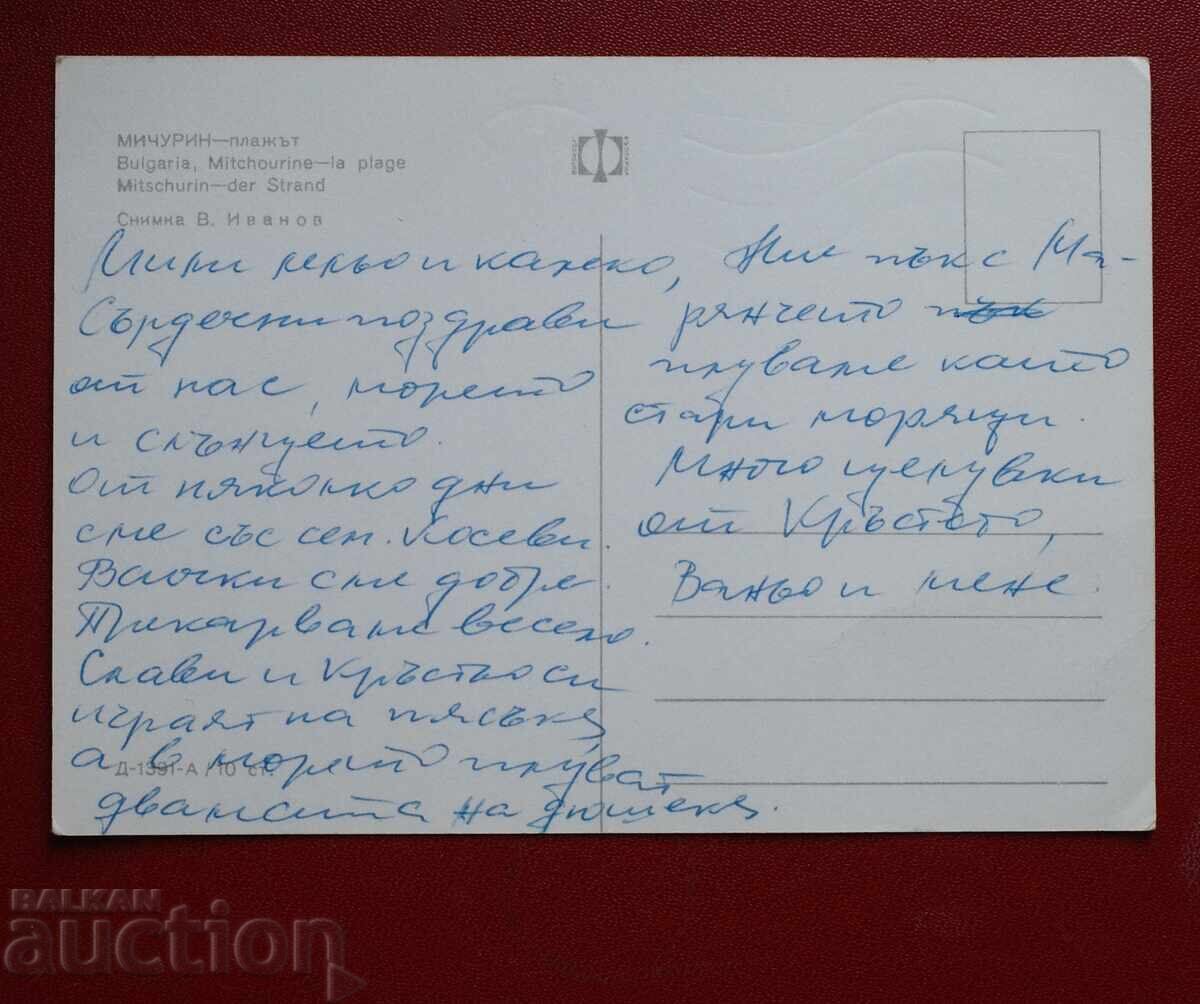 МИЧУРИН—плажът
Bulgaria, Mitchourine—la plage
Mitschurin—der Strand
Снимка В. Иванов
Мили лельо и калеко,
Сърдечни поздрави
от нас, морето
и слънцето.
От няколко дни
сме със сем. Косеви.
Всички сме добре.
Прекарваме весело.
Слави и Кръстьо си
играят на пясъка,
а в морето плуват
двамата на дюшека.
Д-1391-А/10 ст.
Ние пък с Ма-
рянчето пък
плуваме като
стари моряци.
Много целувки
от Кръстьо,
Ваньо и мене.
BALKAN
auction